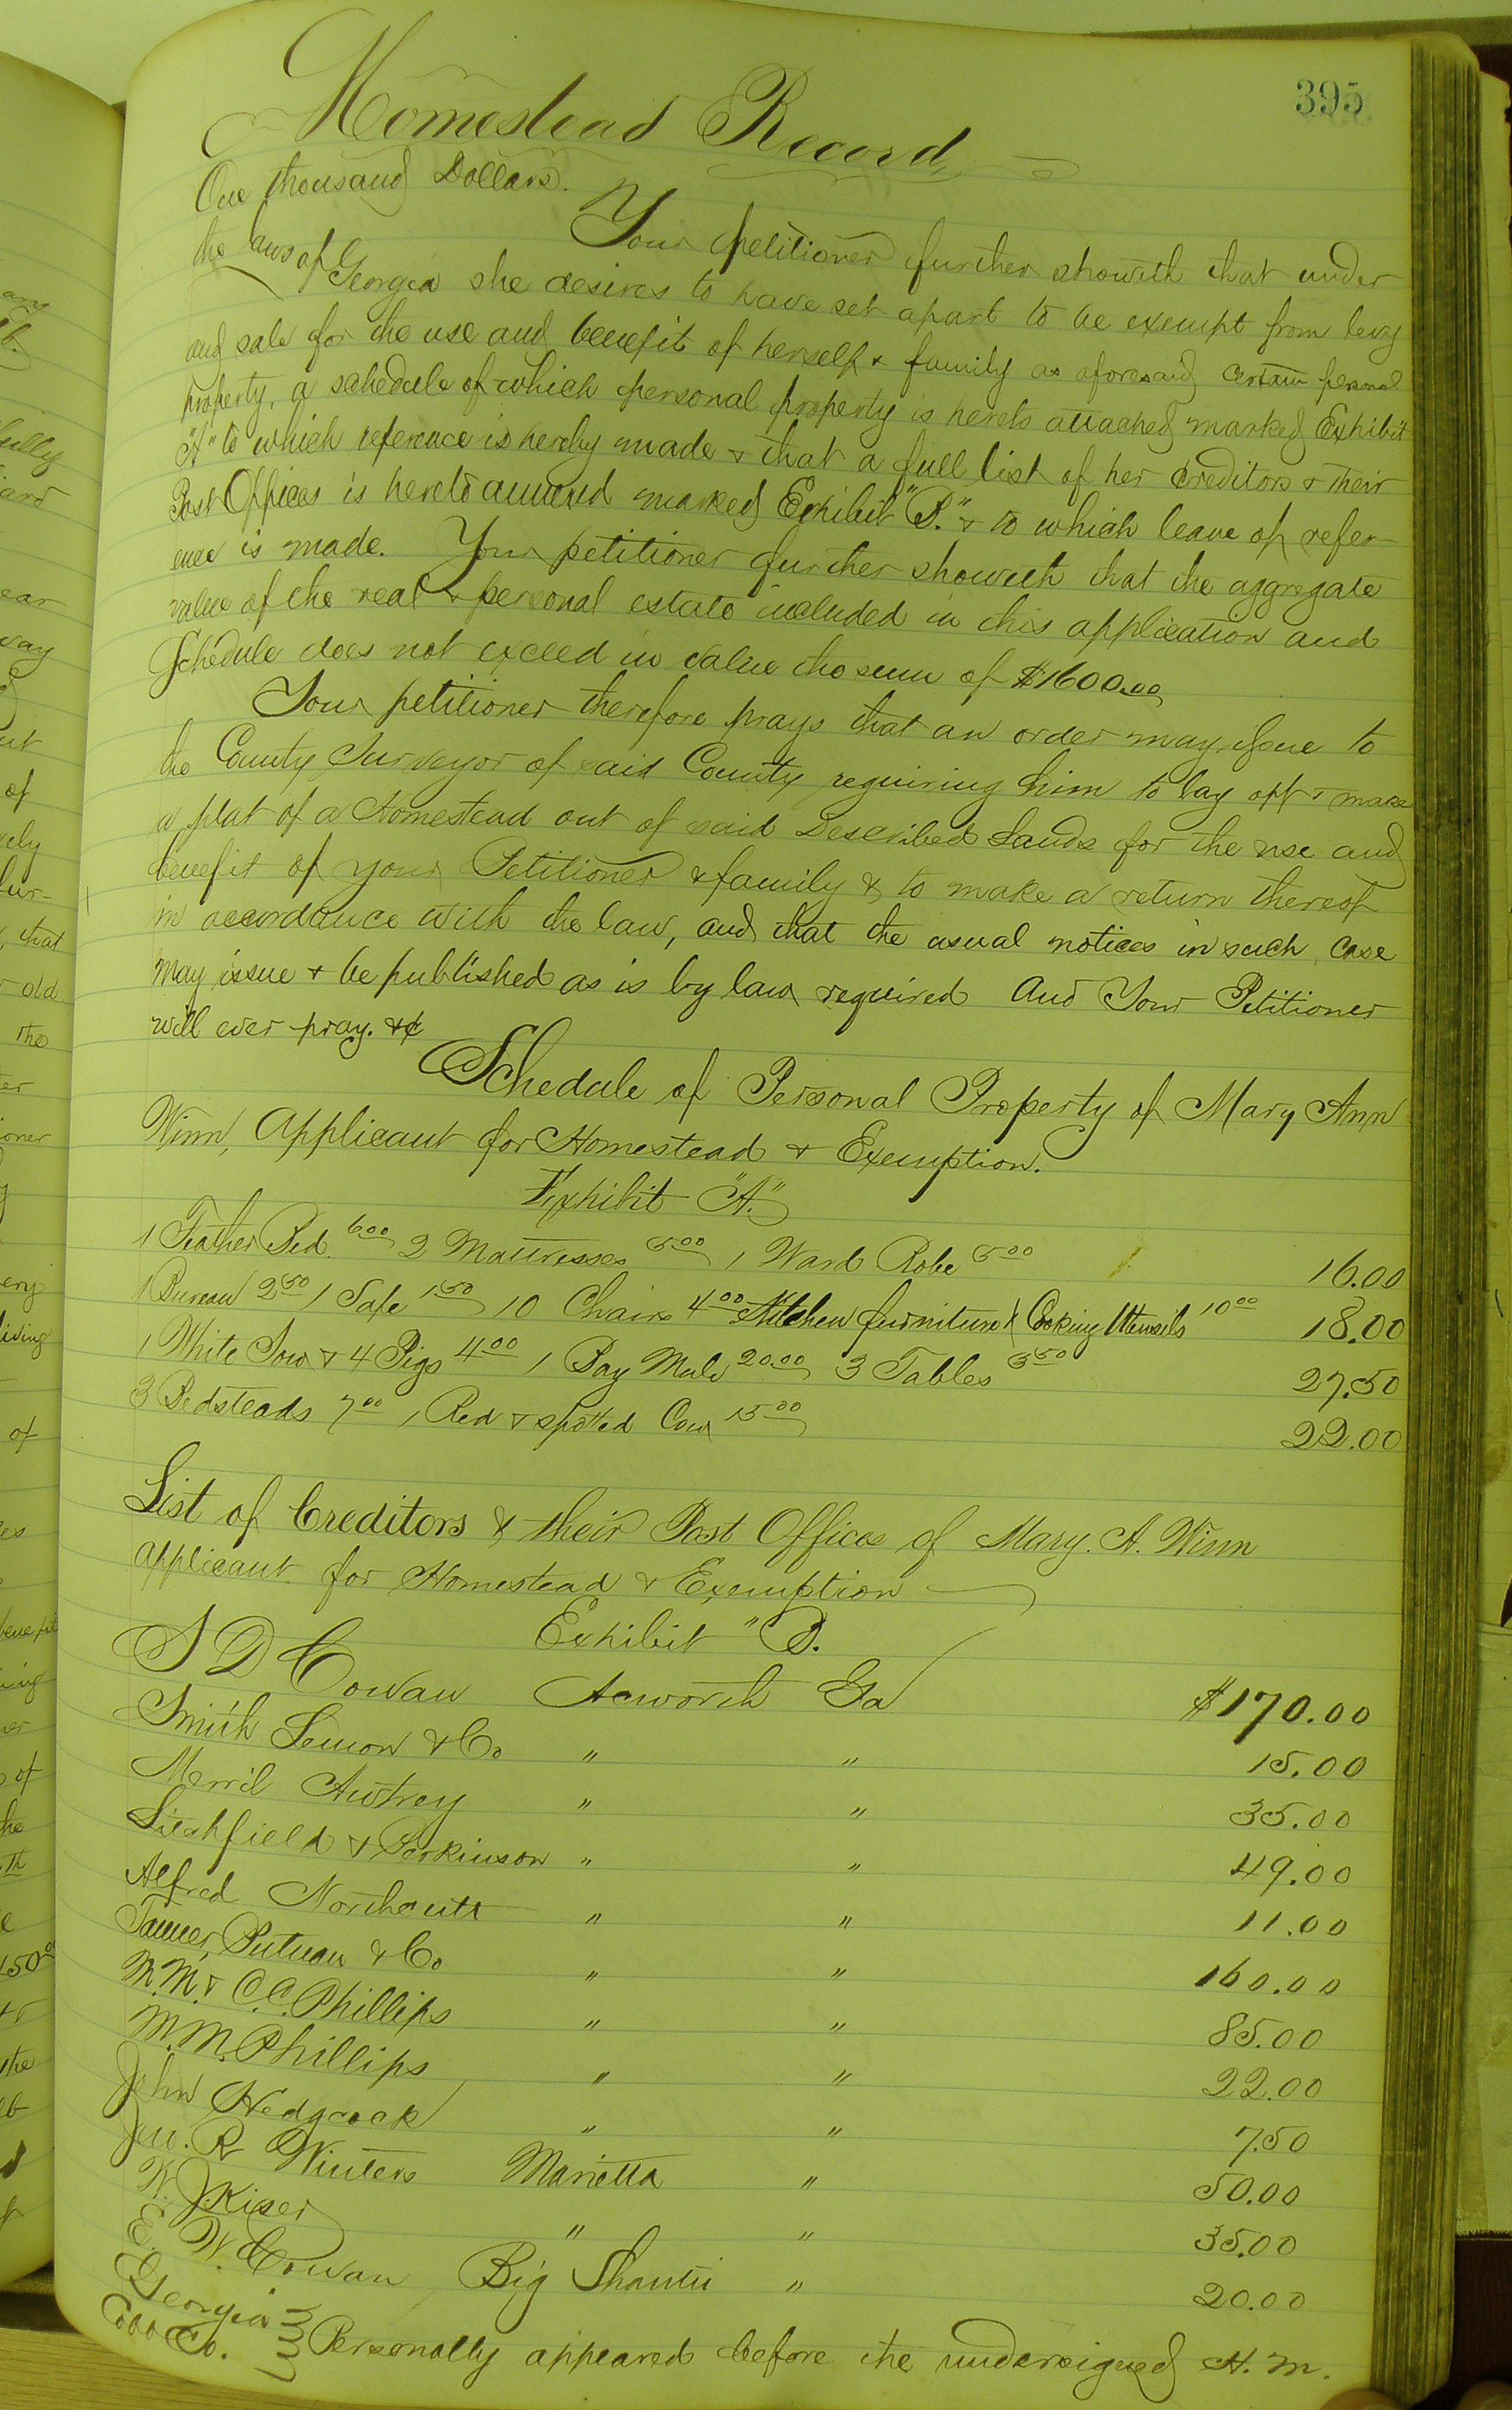 395
Homestead Record
One thousand Dollars.
Your petitioner further showeth that under
the laws of Georgia she desires to have set apart to be exempt from levy
and sale for the use and benefit of herself & family as aforesaid certain personal
property, a schedule of which personal property is hereto attached marked Exhibit
"A" to which reference is hereby made & that a full list of her creditors & their
Post Offices is hereto annexed marked Exhibit "B." & to which leave of refer-
ence is made. Your petitioner further showeth that the aggregate
value of the real & personal estate included in this application and
Schedule does not exceed in value the sum of $1600.00
Your petitioner therefore prays that an order may issue to
the County Surveyor of said County requiring him to lay off & make
a plat of a Homestead out of said Described Lands for the use and
benefit of your Petitioner & family & to make a return thereof
in accordance with the law, and that the usual notices in such case
may issue & be published as is by law required And Your Petitioner
will ever pray. &c
Schedule of Personal Property of Mary Ann
Winn, Applicant for Homestead & Exemption.
Exhibit "A."
1 Feather Bed 6.00 2 Mattresses 5.00 1 Ward Robe 5.00 16.00
1 Bureau 2.50 1 Safe 1.50 10 Chairs 4.00 Kitchen furniture & Cooking Utensils 10.00 18.00
1 White Sow & 4 Pigs 4.00 1 Bay Mule 20.00 3 Tables 3.50 27.50
3 Bedsteads 7.00 1 Red & spotted Cow 15.00 22.00
List of Creditors & their Post Offices of Mary. A. Winn
applicant for Homestead & Exemption
Exhibit "B.
S D Cowan Acworth Ga $170.00
Smith Lemon & Co " " 15.00
Merril Awtrey " " 35.00
Litchfield & Perkinson " " 49.00
Alfred Northcutt " " 11.00
Tanner, Putnam & Co " " 160.00
M.M. & C.C. Phillips " " 85.00
M.M. Phillips " " 22.00
John Hedgcock " " 7.50
Jno. R Winters Marietta " 50.00
W. J. Kiser " " 35.00
E. W. Cowan Big Shanty " 20.00
Georgia
Cobb Co. Personally appeared before the undersigned H. M.